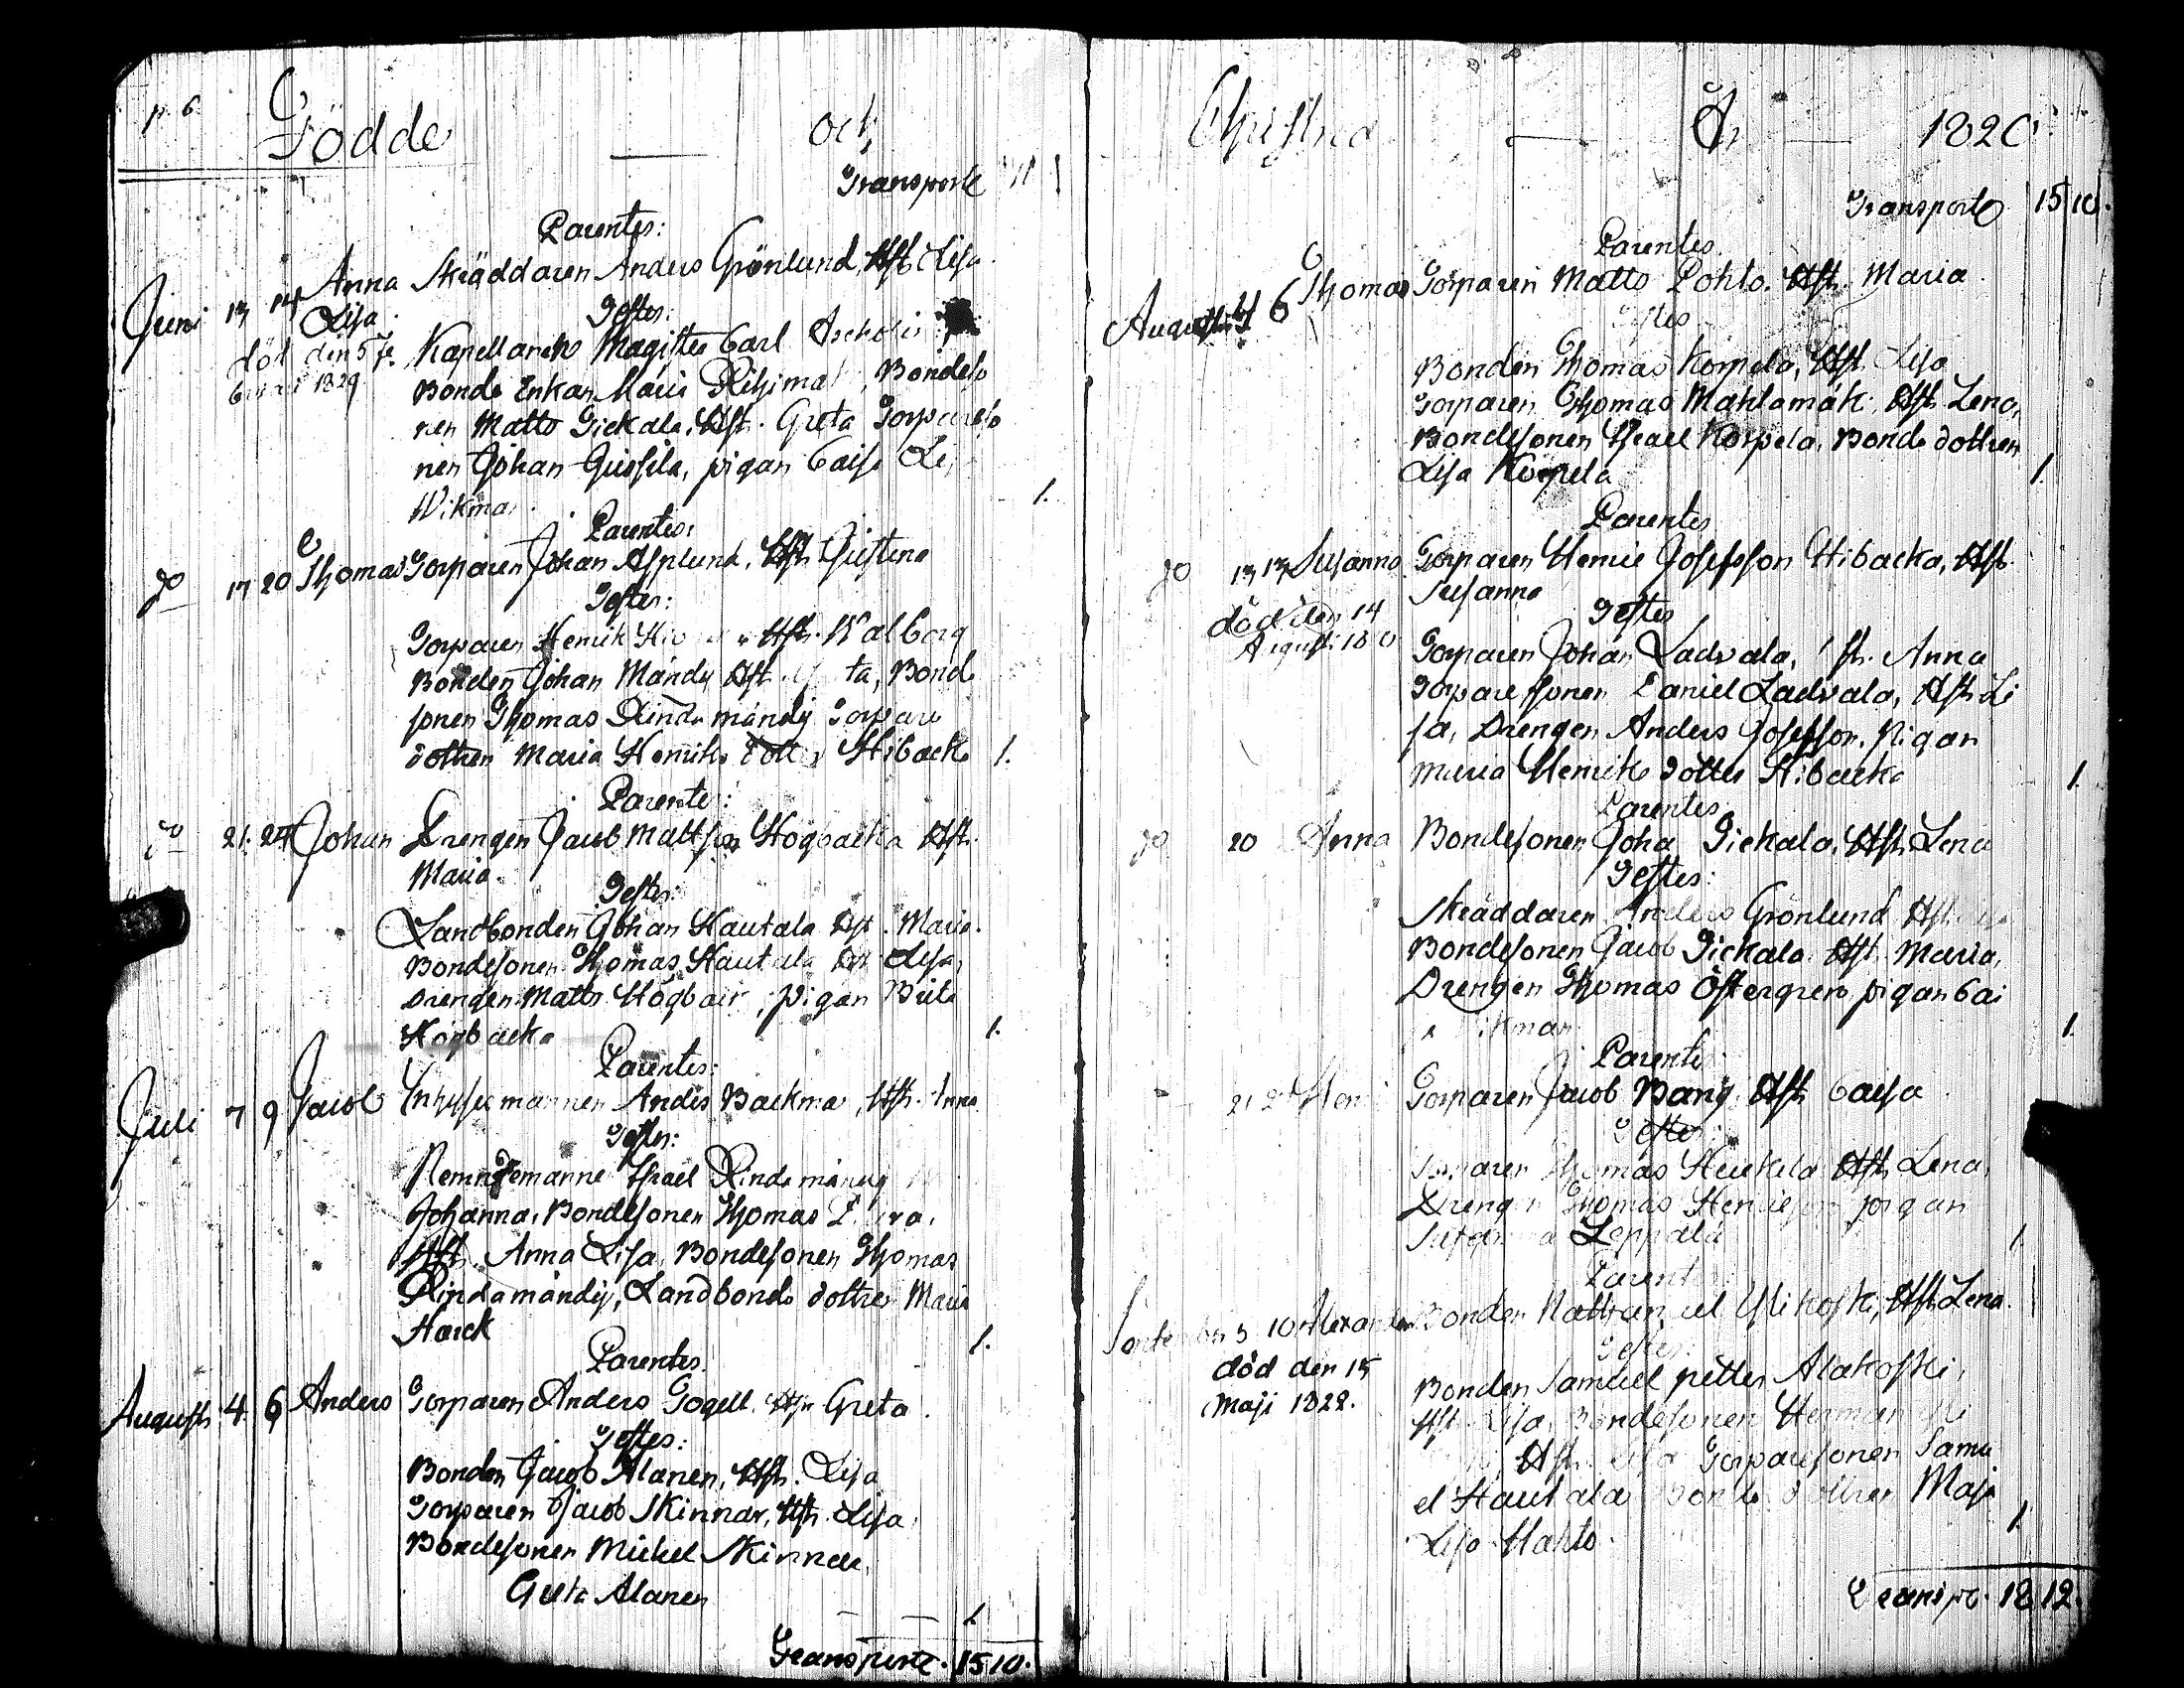 p. 6.
Födde och
Transport 11
Parentes:
Juni 13 14 Anna Skräddaren Anders Grönlund, Hst. Lisa
Lisa Testes:
död den 5 Fe Kapellanen Magister Carl
1829 Bonde Enkan Maria Bondeso
nen Matts Gickala, Hst. Greta Torpareso
nen Johan pigan Caisa
Wikman 1.
Parentes:
do 17 20 Thomas Torparen Johan Asplund, Hst. Justina
Testes:
Torparen Henrik Hst. Walborg
Bonden Johan Mändy Hst. Bonde
sonen Thomas Rindamändy Torpare
dottren Maria Henriks dotter Hibacka 1.
Parentes:
do 21. 24 Johan Drengen Jacob Mattsson Högbacka Hst.
Maria
Testes:
Landbonden Johan Hautala Hst. Maria.
Bondesonen Thomas Hautala Hst Lisa,
Drengen Matts Högbacka, pigan Brita
Högbacka 1.
Parentes:
Juli 7 9 Jacob Inhysesmannen Anders Backman, Hst. Anna
Testes:
Nemndemannen Israel Rindamändy
Johanna, Bondesonen Thomas
Hst. Anna Lisa, Bondesonen Thomas
Rindamändy, Landbonde dottren Maria
Harck 1.
Parentes.
Augusti 4 6 Anders Torparen Anders Gogell. Hst Greta.
Testes:
Bonden Jacob Alanen, Hst. Lisa
Torparen Jacob Skinnar, Hst. Lisa,
Bondesonen Michel Skinnar,
Greta Alanen 1
Transport. 15 10.
Christna År 1820
Transport 15 10.
Parentes
Augusti 6 Thomas Torparen Matts Pohto. Hst. Maria
Testes
Bonden Thomas Korpela, Hst. Lisa
Torparen Thomas Mahlamäki Hst Lena,
Bondesonen Israel Korpela, Bonde dottren
Lisa Korpela 1.
Parentes
do 13 13 Susanna Torparen Henric Josefsson Hibacka, Hst.
Susanna
död den 14 Testes
Augusti Torparen Johan Ladvala, Hst. Anna
Torparesonen Daniel Ladvala, Hst Li
sa, Drengen Anders Josefsson. Pigan
Maria Henriks dotter Hibacka 1.
Parentes
do 20 Anna Bondesonen Johan Gickala, Hst. Lena
Testes:
Skräddaren Anders Grönlund Hst.
Bondesonen Jacob Gickala Hst. Maria,
Drengen Thomas Östergren pigan Cai
Wikman 1.
Parentes
21 Torparen Jacob Bang Hst Caisa
Testes:
Torparen Thomas Heickila Hst Lena,
Drengen Thomas Henricsson pigan
Leppälä 1
Parentes
September 3 10 Alexander Bonden Nathanael Ylikoski, Hst Lena.
Testes
död den 15 Bonden Samuel Petter Alakoski,
Maji 1828. Hst. Lisa, Bondesonen Herman
Hst. Lisa Torparesonen Samu
el Hautala Bonde dottren Maja
Lisa 1.
Transpt. 18 12.